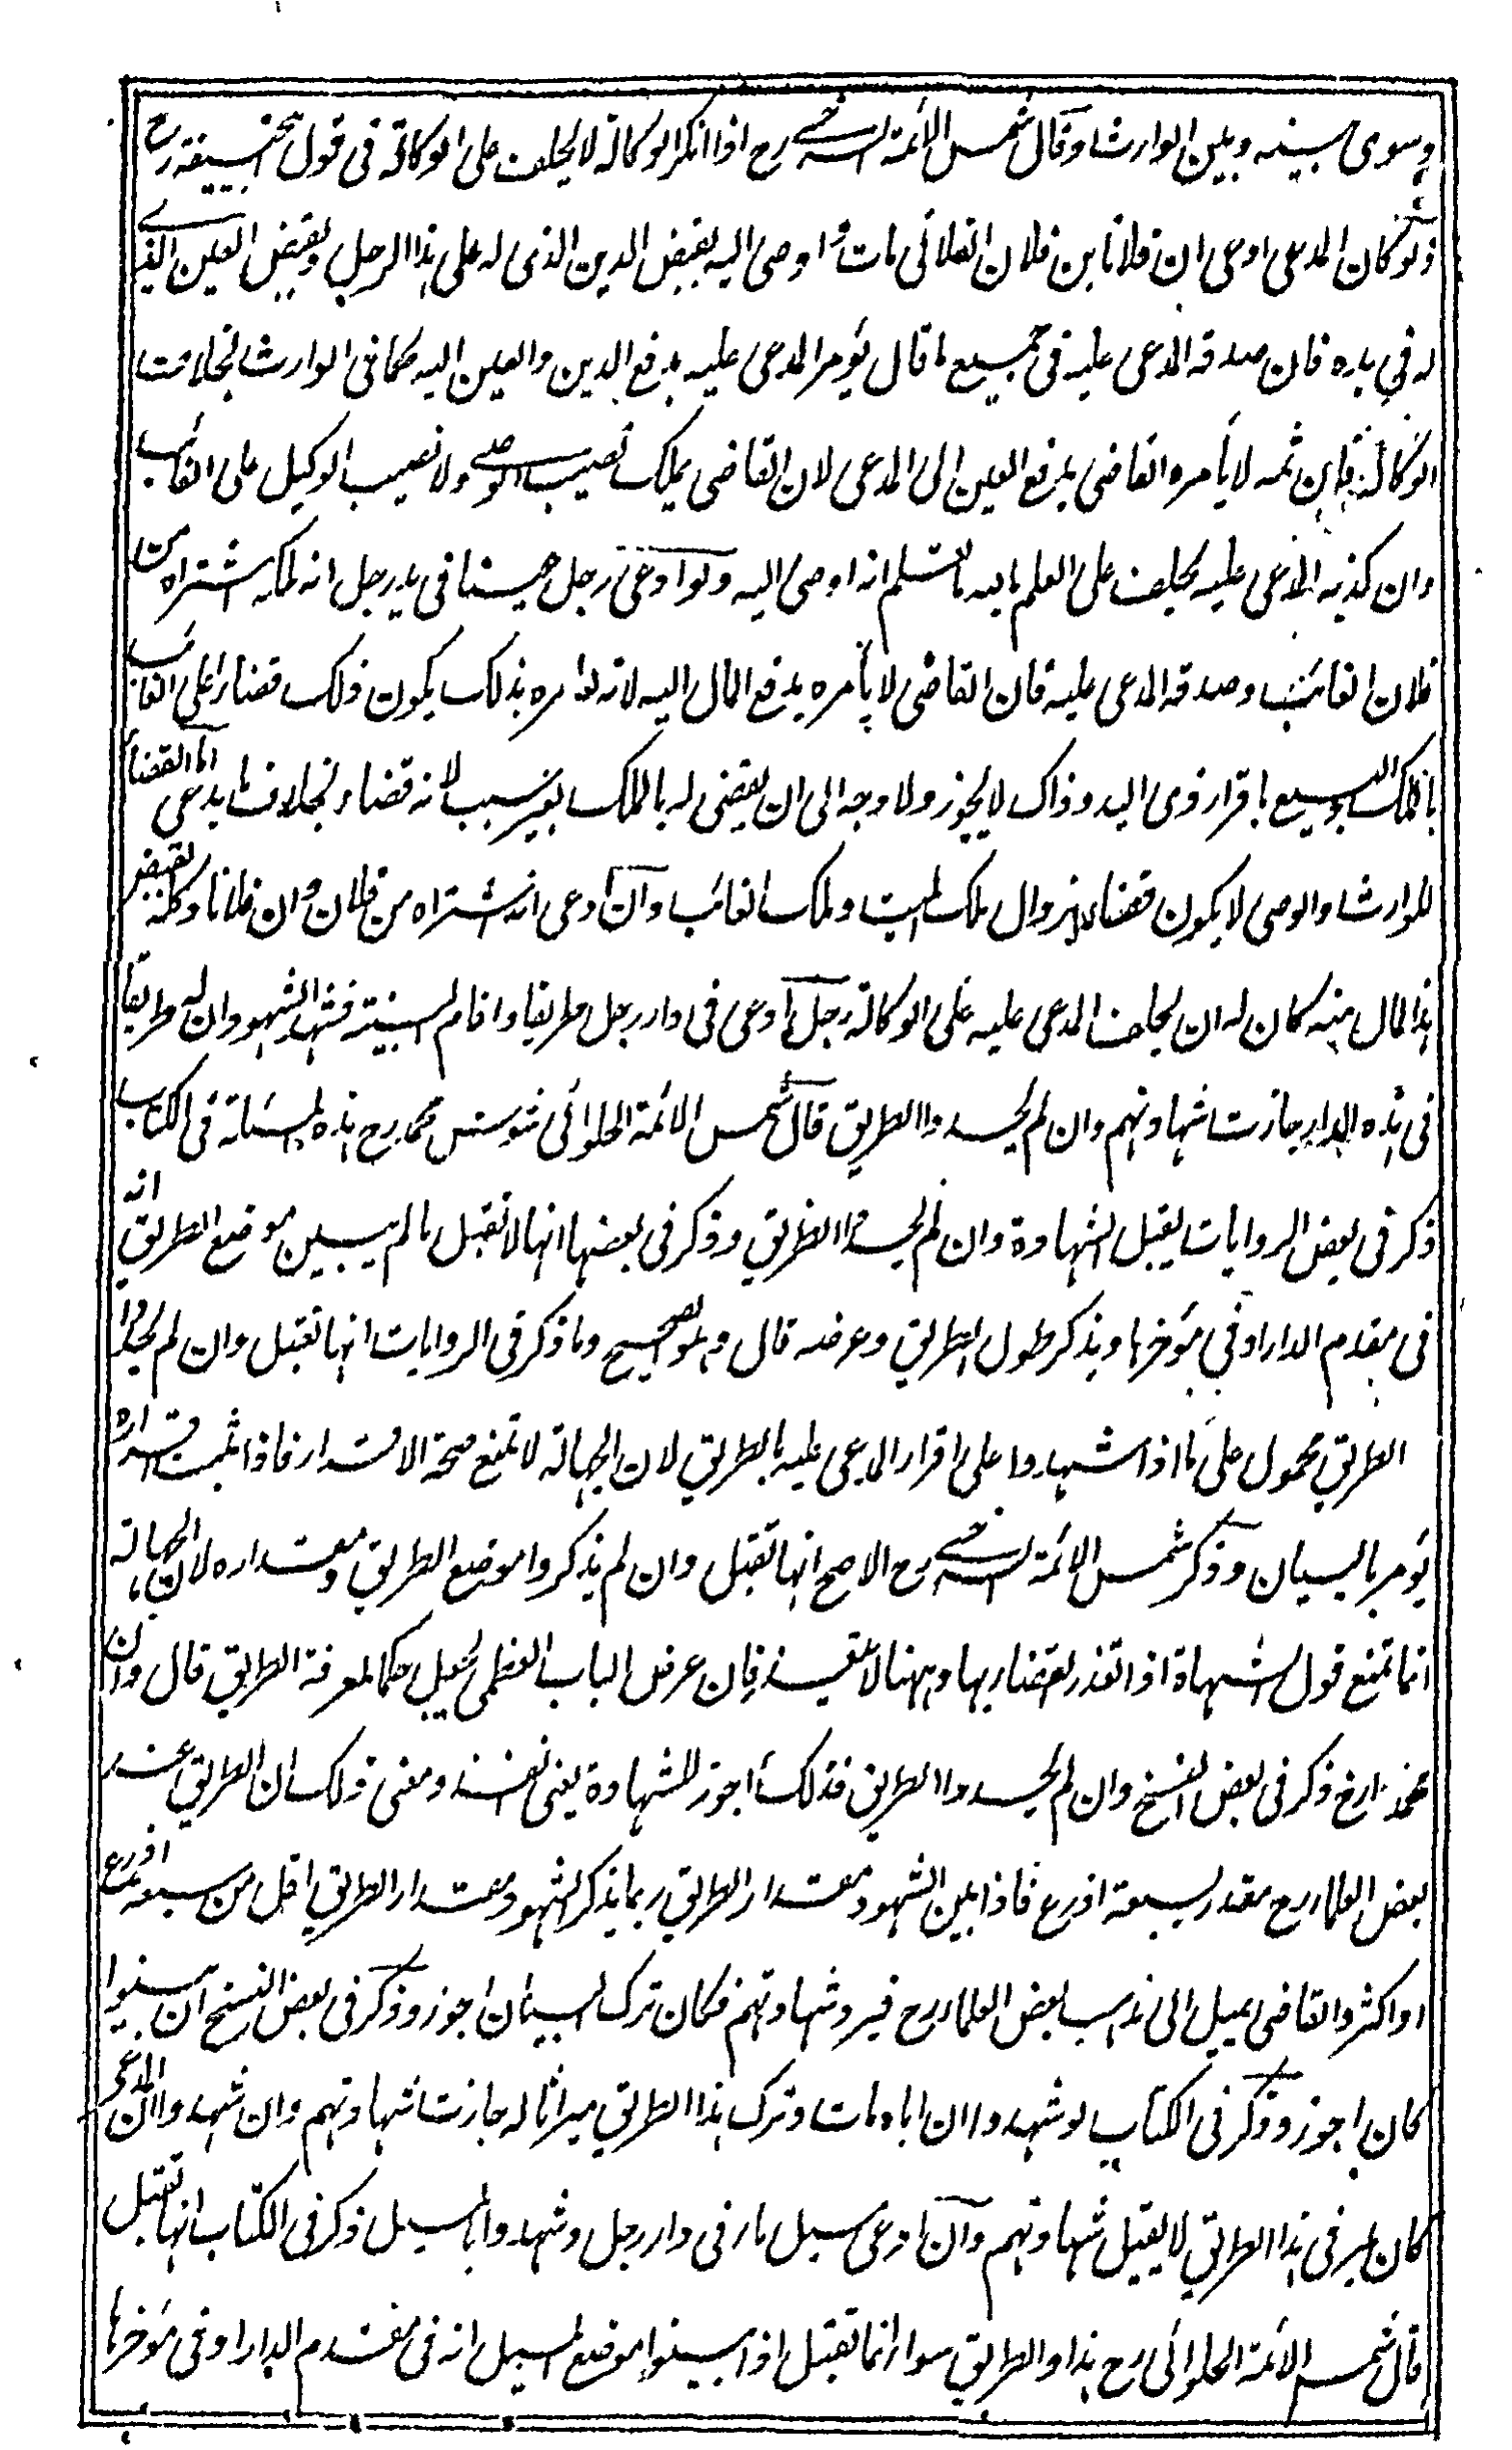 وسوى بينه وبين الوارث وقال شمس الائمة السرخسي رح اذا انكر الوكالة لا يحلف على الوكالة في قول ابيحنيفة رح
ولو كان المدعى ادعى ان فلانا بن فلان الفلانى مات و اوصى اليه بقبض الدين الذى له على هذا الرجل وبقبض العين الذى
له فى يده فان صدقه المدعى عليه فى جميع ما قال يؤمر المدعى عليه بدفع الدين والعين اليه كما فى الوارث بخلاف
الوكالة فان ثمه لا يأمره القاضى بدفع العين الى المدعى لان القاضى يملك نصيب الوصى ولا نصيب الوكيل على الغائب
وان كذبه المدعى عليه يحلف على العلم بالله ما تعلم انه اوصى اليه ولو ادعى رجل عينا فى يد رجل انه ملكه اشتراه من
فلان الغائب وصدقه المدعى عليه فان القاضى لا يأمره بدفع المال اليه لانه لو امره بذلك يكون ذلك قضاء على الغائب
بالملك البيع باقرار ذى اليد وذاك لا يجوز ولا وجه الى ان يقضى له بالملك بغير سبب لانه قضاء بخلاف ما يدعى اما القضاء
للوارث والوصى لا يكون قضاء بزوال ملك الميت وملك الغائب وان ادعى انه اشتراه من فلان وان فلانا وكله بقبض
هذا المال منه كان له ان يحلف المدعى عليه على الوكالة رجل ادعى فى دار رجل طريقا واقام البينة فشهد الشهود ان له طريقا
فى هذه الدار جازت شهادتهم وان لم يحدوا الطريق قال شمس الائمة الحلوائى شوش محمد رح هذه المسئلة فى الكتاب
ذكر فى بعض الروايات يقبل الشهادة وان لم يحدوا الطريق وذكر فى بعضها انها لا تقبل ما لم يبين موضع الطريق انه
فى مقدم الدار او فى مؤخرها ويذكر طول الطريق وعرضه قال وهو الصحيح وما ذكر فى الروايات انها تقبل وان لم يحدوا
الطريق محمول على ما اذا شهدوا على اقرار المدعى عليه بالطريق لان الجهالة لا تمنع صحة الاقرار فاذا ثبت اقراره
يؤمر بالبيان وذكر شمس الائمة السرخسي رح الاصح انها تقبل وان لم يذكروا موضع الطريق ومقداره لان الجهالة
انما تمنع قبول الشهادة اذا تعذر القضاء بها وههنا لا يتعذر فان عرض الباب العظمى يجعل حكما لمعرفة الطريق قال وان
محمد رح ذكر فى بعض النسخ وان لم يحدوا الطريق فذلك اجوز للشهادة يعنى انفذ ومعنى ذلك ان الطريق عند
بعض العلماء رح مقدر بسبعة اذرع فاذا بين الشهود مقدار الطريق ربما يذكر الشهود مقدار الطريق اقل من سبعة اذرع
او اكثر والقاضى يميل الى مذهب بعض العلماء رح فيرد شهادتهم فكان ترك البيان اجوز وذكر فى بعض النسخ ان بينوا
كان اجوز وذكر فى الكتاب لو شهدوا ان اباه مات وترك هذا الطريق ميراثا له جازت شهادتهم وان شهدوا ان المدعى
كان يمر فى هذا الطريق لا يقبل شهادتهم وان ادعى مسيل ماء فى دار رجل وشهدوا بالمسيل ذكر فى الكتاب انها تقبل
قال شمس الائمة الحلوائى رح هذا والطريق سواء انما تقبل اذا بينوا موضع المسيل انه فى مقدم الدار او فى مؤخرها